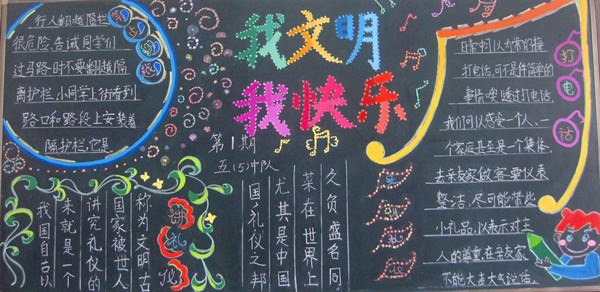 我文明
我快乐
第1期
五(5)中队
行人翻越隔栏
很危险,告诫同学们
过马路时不要翻越隔
离护栏,小同学上街看到
路口和路段上安装着
隔护栏,它是
讲礼仪
我国自古以
来就是一个
讲究礼仪的
国家被世人
称为文明古
国,礼仪之邦
尤其是中国
菜在世界上
久负盛名,同
打电话
日常中,认为常的接
打电话,可不是件简单的
事情呀!透过打电话,
我们可以感受一个人、一
个家庭甚至是一个集体
去亲友家做客要仪表
整洁,尽可能带些
小礼品,以表示对主
人的尊重,在亲友家
不能大声大气说话。